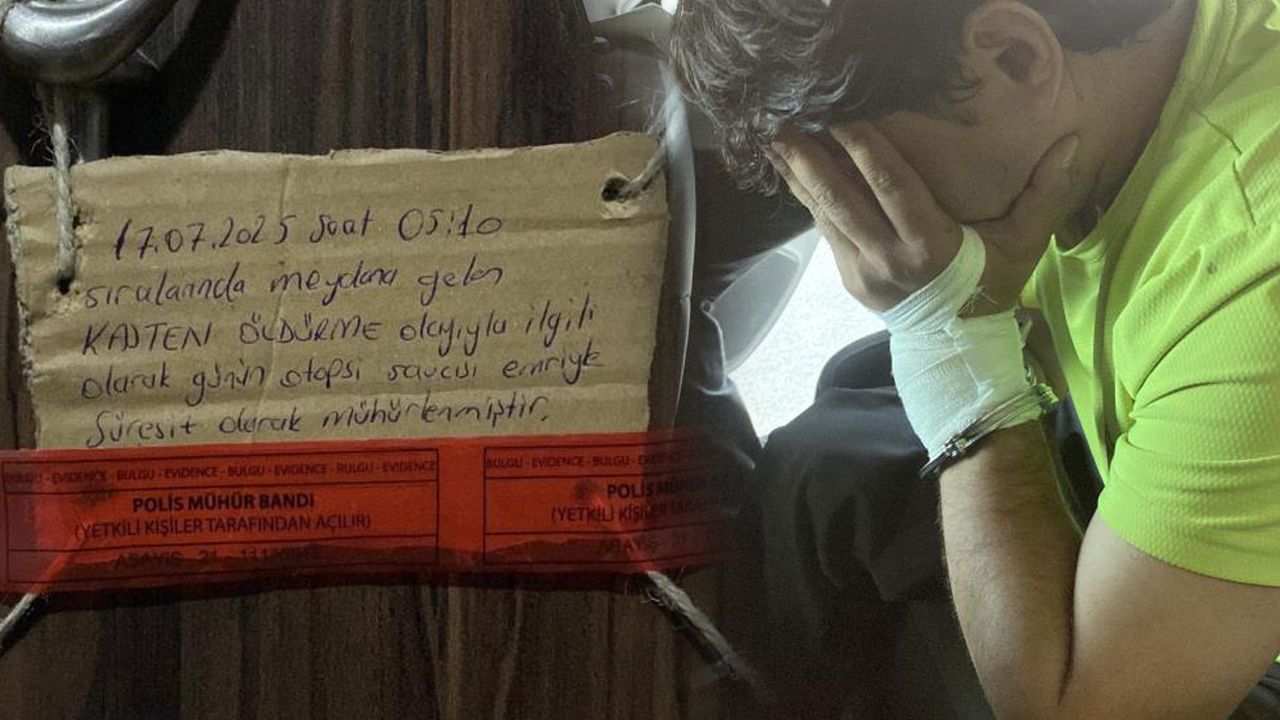 17.07.2025 Saat 05:10
sıralarında meydana gelen
KASTEN ÖLDÜRME olayıyla ilgili
olarak günün otopsi savcısı emriyle
Süresit olarak mühürlenmiştir.
BULGU - EVIDENCE - BULGU - EVIDENCE - BULGU - EVIDENCE - BULGU - EVIDENCE
POLİS MÜHÜR BANDI
(YETKİLİ KİŞİLER TARAFINDAN AÇILIR)
ASAYİŞ
BULGU - EVIDENCE - BULGU - EVIDENCE
POLİS
(YETKİLİ KİŞİLER TARAFINDAN